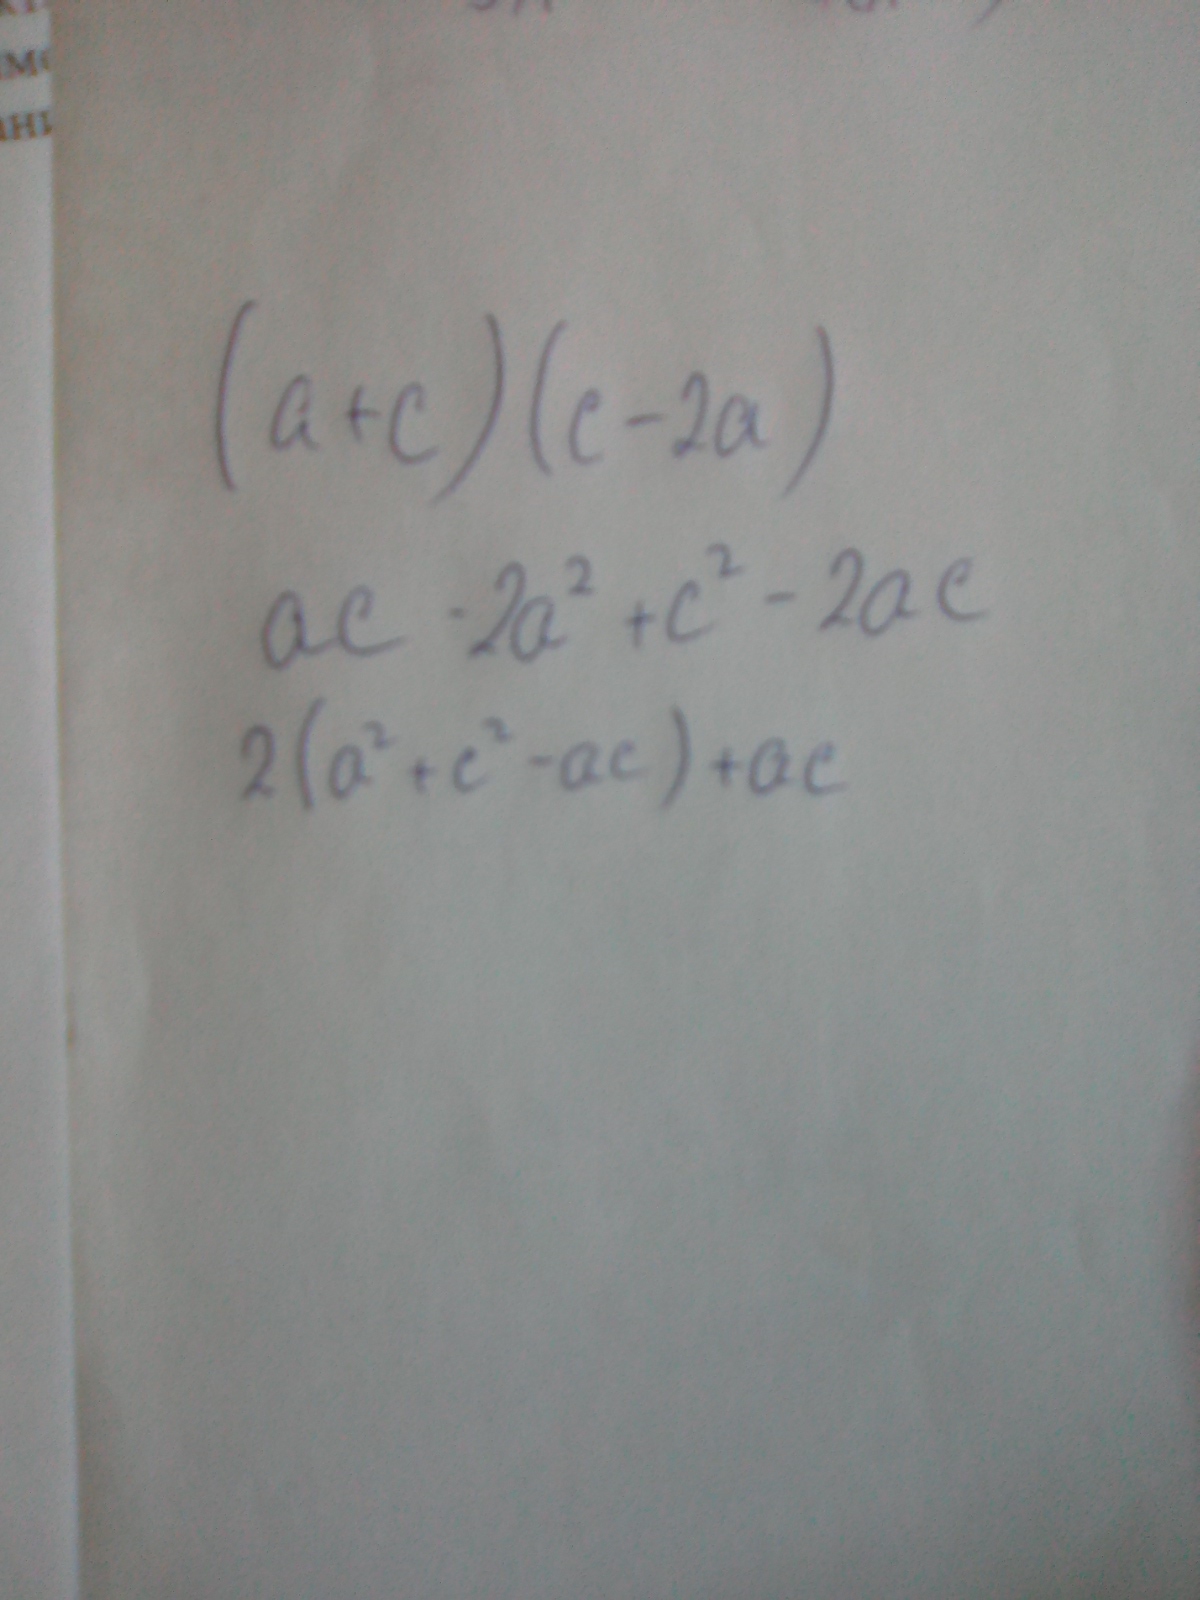 (a+c)(c-2a)
ac -2a² +c² - 2ac
2(a² +c² -ac)+ac